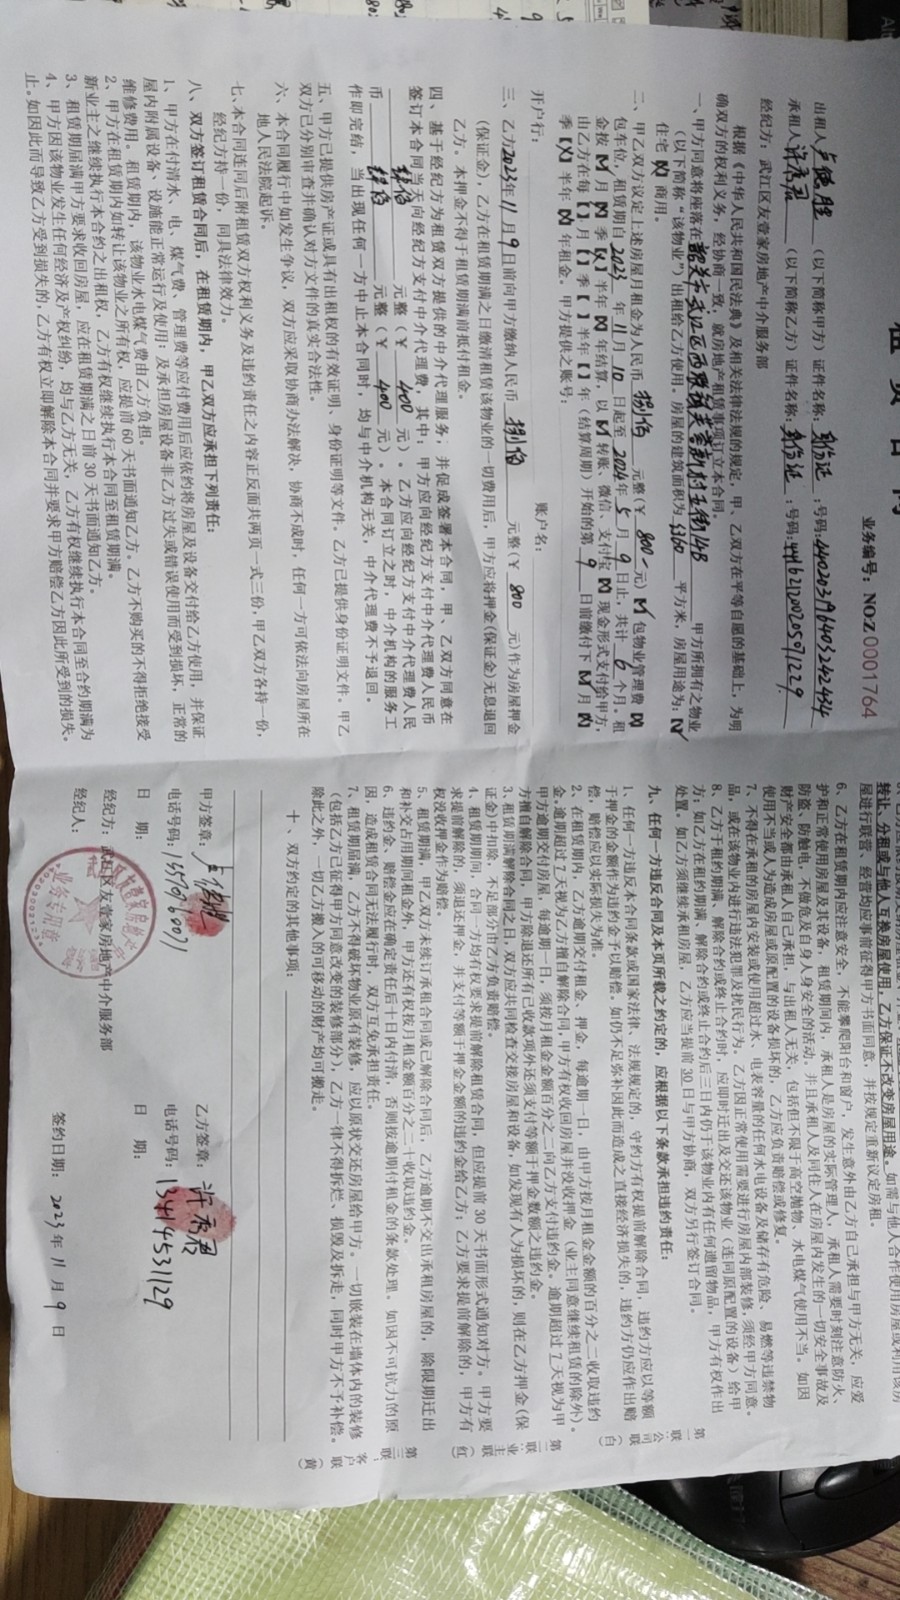 租 赁 合 同
业务编号：NOZ 0001764
出租人
（以下简称甲方）证件名称：身份证；号码：
承租人 许
（以下简称乙方）证件名称：身份证；号码：
经纪方：武江区友壹家房地产中介服务部
根据《中华人民共和国民法典》及相关法律法规的规定，甲、乙双方在平等自愿的基础上，为明
确双方的权利义务，经协商一致，就房地产租赁事项订立本合同。
一、甲方同意将座落在韶关市武江区西联镇芙蓉新村 甲方所拥有之物业
（以下简称“该物业”）出租给乙方使用。房屋的建筑面积为 平方米，房屋用途为：
住宅 商用。
二、甲乙双方议定上述房屋月租金为人民币 捌佰 元整（￥ 800 元） 包物业管理费
包车位，租赁期自 2023 年 11 月 10 日起至 2024 年 5 月 9 日止，共计 6 个月。租
金按 月 季 半年 年结算，以 转账、微信、支付宝 现金形式支付给甲方，
由乙方在每【 】月【 】季【 】半年【 】年（结算周期）开始的第 9 日前缴付下 月
季 半年 年租金。甲方提供之账号：
开户行： 账户名：
三、乙方 2023 年 11 月 9 日前向甲方缴纳人民币 捌佰 元整（￥ 800 元）作为房屋押金
（保证金），乙方在租赁期满之日缴清租赁该物业的一切费用后，甲方应将押金（保证金）无息退回
乙方。本押金不得于租赁期满前抵付租金。
四、基于经纪方为租赁双方提供的中介代理服务，并促成签署本合同，甲、乙双方同意在
签订本合同当天向经纪方支付中介代理费，其中：甲方应向经纪方支付中介代理费人民币
肆佰 元整（￥ 400 元）。乙方应向经纪方支付中介代理费人民
币 肆佰 元整（￥ 400 元）。本合同订立之时，中介机构的服务工
作即完结，当出现任何一方中止本合同时，均与中介机构无关，中介代理费不予退回。
五、甲方已提供房产证或具有出租权的有效证明、身份证明等文件。乙方已提供身份证明文件。甲乙
双方已分别审查并确认对方文件的真实合法性。
六、本合同履行中如发生争议，双方应采取协商办法解决，协商不成时，任何一方可依法向房屋所在
地人民法院起诉。
七、本合同连同后附租赁双方权利义务及违约责任之内容正反面共两页一式三份，甲乙双方各持一份，
经纪方持一份，同具法律效力。
八、双方签订租赁合同后，在租赁期内，甲乙双方应承担下列责任：
1、甲方在付清水、电、煤气费、管理费等应付费用后应依约将房屋及设备交付给乙方使用，并保证
屋内附属设备、设施能正常运行及使用；及承担房屋设备非乙方过失或错误使用而受到损坏，正常的
维修费用。租赁期内，该物业水电煤气费由乙方负担。
2、甲方在租赁期内如转让该物业之所有权，应提前 60 天书面通知乙方。乙方不购买的不得拒绝接受
新业主之继续执行本合约之出租权，乙方有权继续执行本合同至租赁期满。
3、租赁期届满甲方要求收回房屋，应在租赁期满之日前 30 天书面通知乙方。
4、甲方因该物业发生任何经济及产权纠纷，均与乙方无关，乙方有权继续执行本合同至合约期满为
止。如因此而导致乙方受到损失的，乙方有权立即解除本合同并要求甲方赔偿乙方因此所受到的损失。
转让、分租或与他人互换房屋使用，乙方保证不改变房屋用途。如需与他人合作使用房屋或利用该房
屋进行联营、经营均应事前征得甲方书面同意，并按规定重新议定房租。
6、乙方在租赁期内应注意安全，不能攀爬阳台和窗户，发生意外由乙方自己承担与甲方无关，应爱
护和正常使用房屋及其设备，租赁期间内，承租人是房屋的实际管理人，承租人需要时刻注意防火、
防盗、防触电，不做危及自身人身安全的活动，并且承租人及同住人在房屋内发生的一切安全事故及
财产安全都由承租人自己承担，与出租人无关，包括但不限于高空抛物，水电煤气使用不当。如因
使用不当或人为造成房屋或原配置的设备损坏的，乙方应负责赔偿或修复。
7、不得在承租的房屋内安装或使用超过水、电表容量的任何水电设备及储存有危险、易燃等违禁物
品，或在该物业内进行违法犯罪及扰民行为。乙方因正常使用需要进行房屋内部装修，须经甲方同意。
8、乙方于租约期满，解除合约或终止合约时，应即时迁出及交还该物业（连同原配置的设备）给甲
方；如乙方在租约期满、解除合约或终止合约后三日内仍于该物业内有任何遗留物品，甲方有权作出
处置。如乙方须继续承租房屋，乙方应当提前 30 日与甲方协商，双方另行签订合同。
九、任何一方违反合同及本页所载之约定的，应根据以下条款承担违约责任：
1、任何一方违反本合同条款或国家法律、法规规定的，守约方有权提前解除合同，违约方应以等额
于押金的金额作为违约金予以赔偿，如仍不足弥补因此而造成之直接经济损失的，违约方仍应作出赔
偿，赔偿应以实际损失为准。
2、在租赁期内，乙方逾期交付租金、押金，每逾期一日，由甲方按月租金金额的百分之二收取违约
金。逾期超过 7 天视为乙方擅自解除合同，甲方有权收回房屋并没收押金（业主同意继续租赁的除外）。
甲方逾期交付房屋，每逾期一日，须按月租金金额百分之二向乙方支付违约金。逾期超过 7 天视为甲
方擅自解除合同，甲方除退还所有已收款项外还须支付等额于押金数额之违约金。
3、租赁期满解除合同之日，双方应共同检查交接房屋和设备，如发现有人为损坏的，则在乙方押金（保
证金）中扣除，不足部分由乙方负责赔偿。
4、租赁期期间，合同一方均有权要求提前解除租赁合同，但应提前 30 天书面形式通知对方。甲方要
求提前解除的，须退还押金，并支付等额于押金金额的违约金给乙方；乙方要求提前解除的，甲方有
权没收押金作为赔偿。
5、租赁期满，甲乙双方未续订承租合同或已解除合同后，乙方逾期不交出承租房屋的，除限期迁出
和补交占用期间租金外，甲方还有权按月租金额百分之二十收取违约金。
6、违约金、赔偿金应在确定责任后十日内付清，否则按逾期付租金的条款处理，如因不可抗力的原
因，造成租赁合同无法履行时，双方互免承担责任。
7、租赁期届满，乙方不得破坏物业原有装修，应以原状交还房屋给甲方。一切嵌装在墙体内的装修
（包括乙方已征得甲方同意改变的装修部分），乙方一律不得拆烂、损毁及拆走，同时甲方不予补偿。
除此之外，一切乙方搬入的可移动的财产均可搬走。
十、双方约定的其他事项：
甲方签章： 乙方签章：许
电话号码： 电话号码：13414531129
日 期： 日 期：
经纪方：武江区友壹家房地产中介服务部
经纪人： 签约日期：2023 年 11 月 9 日
业务专用章
第一联 公司（白）
第二联 业主（红）
第三联 客户（黄）